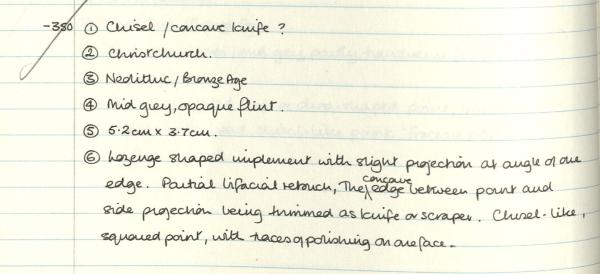 -350 ① Chisel / concave knife ?
② Christchurch.
③ Neolithic / Bronze Age
④ Mid grey, opaque flint.
⑤ 5.2cm x 3.7cm.
⑥ Lozenge shaped implement with slight projection at angle of one
edge. Partial bifacial retouch, The concave edge between point and
side projection being trimmed as knife or scraper. Chisel-like,
squared point, with traces of polishing on one face.